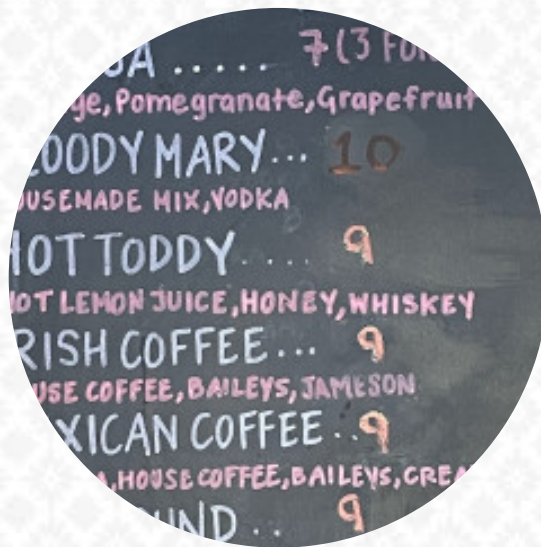 ..... 7 (3 FOR
Pomegranate, Grapefruit
BLOODY MARY... 10
HOUSEMADE MIX, VODKA
HOT TODDY.... 9
HOT LEMON JUICE, HONEY, WHISKEY
IRISH COFFEE... 9
HOUSE COFFEE, BAILEYS, JAMESON
MEXICAN COFFEE.. 9
HOUSE COFFEE, BAILEYS,
.. 9